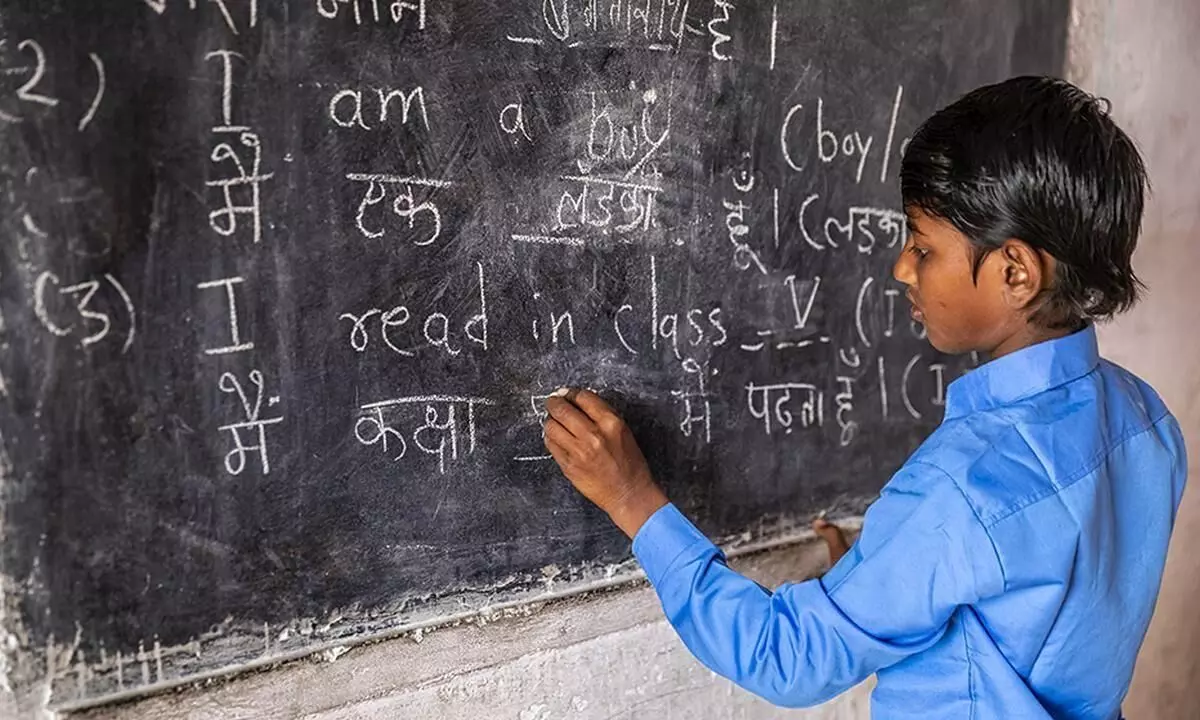 है ।
2) I am a boy (boy/
मैं एक लड़का हूँ । (लड़का
(3) I read in class V (I
मैं कक्षा में पढ़ता हूँ । (I